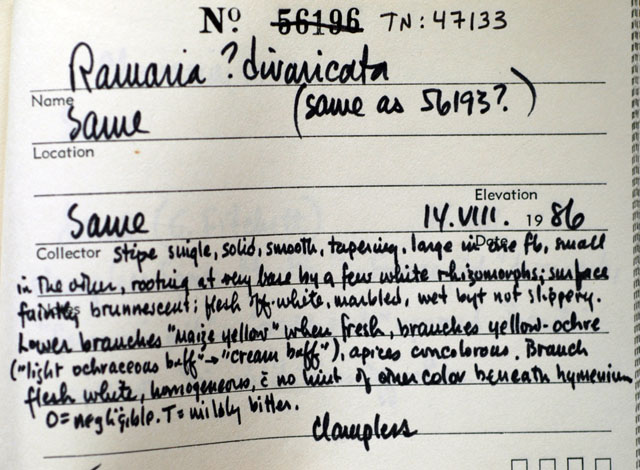 Nº 56196 TN: 47133
Ramaria ? divaricata
Name (same as 56193?)
Same
Location
Elevation
Same 14.VIII. 1986
Collector Date
stipe single, solid, smooth, tapering, large in one fb, small
in the other, rooting at very base by a few white rhizomorphs; surface
faintly brunnescent; flesh off-white, marbled, wet byt not slippery.
Lower branches "maize yellow" when fresh, branches yellow-ochre
("light ochraceous buff" → "cream buff"), apices concolorous. Branch
flesh white, homogeneous, c̄ no hint of other color beneath hymenium
O = negligible. T = mildly bitter.
Clampless